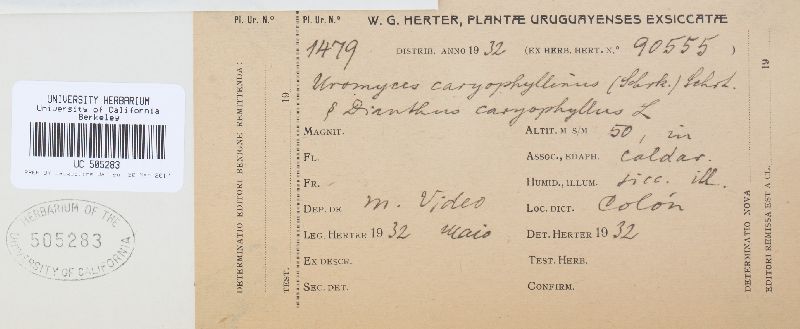 Pl. Ur. N.º
Pl. Ur. N.º
W. G. HERTER, PLANTÆ URUGUAYENSES EXSICCATÆ
1479
DISTRIB. ANNO 1932 (EX HERB. HERT. N.º 90555)
Uromyces caryophyllinus (Schrk.) Schrt.
f Dianthus caryophyllus L
MAGNIT.
ALTIT. M S/M 50, in
FL.
ASSOC., EDAPH. caldar.
FR.
HUMID., ILLUM. sicc. ill.
DEP. DE M. Video
LOC. DICT. Colón
LEG. HERTER 1932 Maio
DET. HERTER 1932
EX DESCR.
TEST. HERB.
SEC. DET.
CONFIRM.
DETERMINATIO EDITORI BENIGNE REMITTENDA:
TEST.
19
DETERMINATIO NOVA
EDITORI REMISSA EST A CL.
19
UNIVERSITY HERBARIUM
University of California
Berkeley
UC 505283
HERBARIUM OF THE
505283
UNIVERSITY OF CALIFORNIA